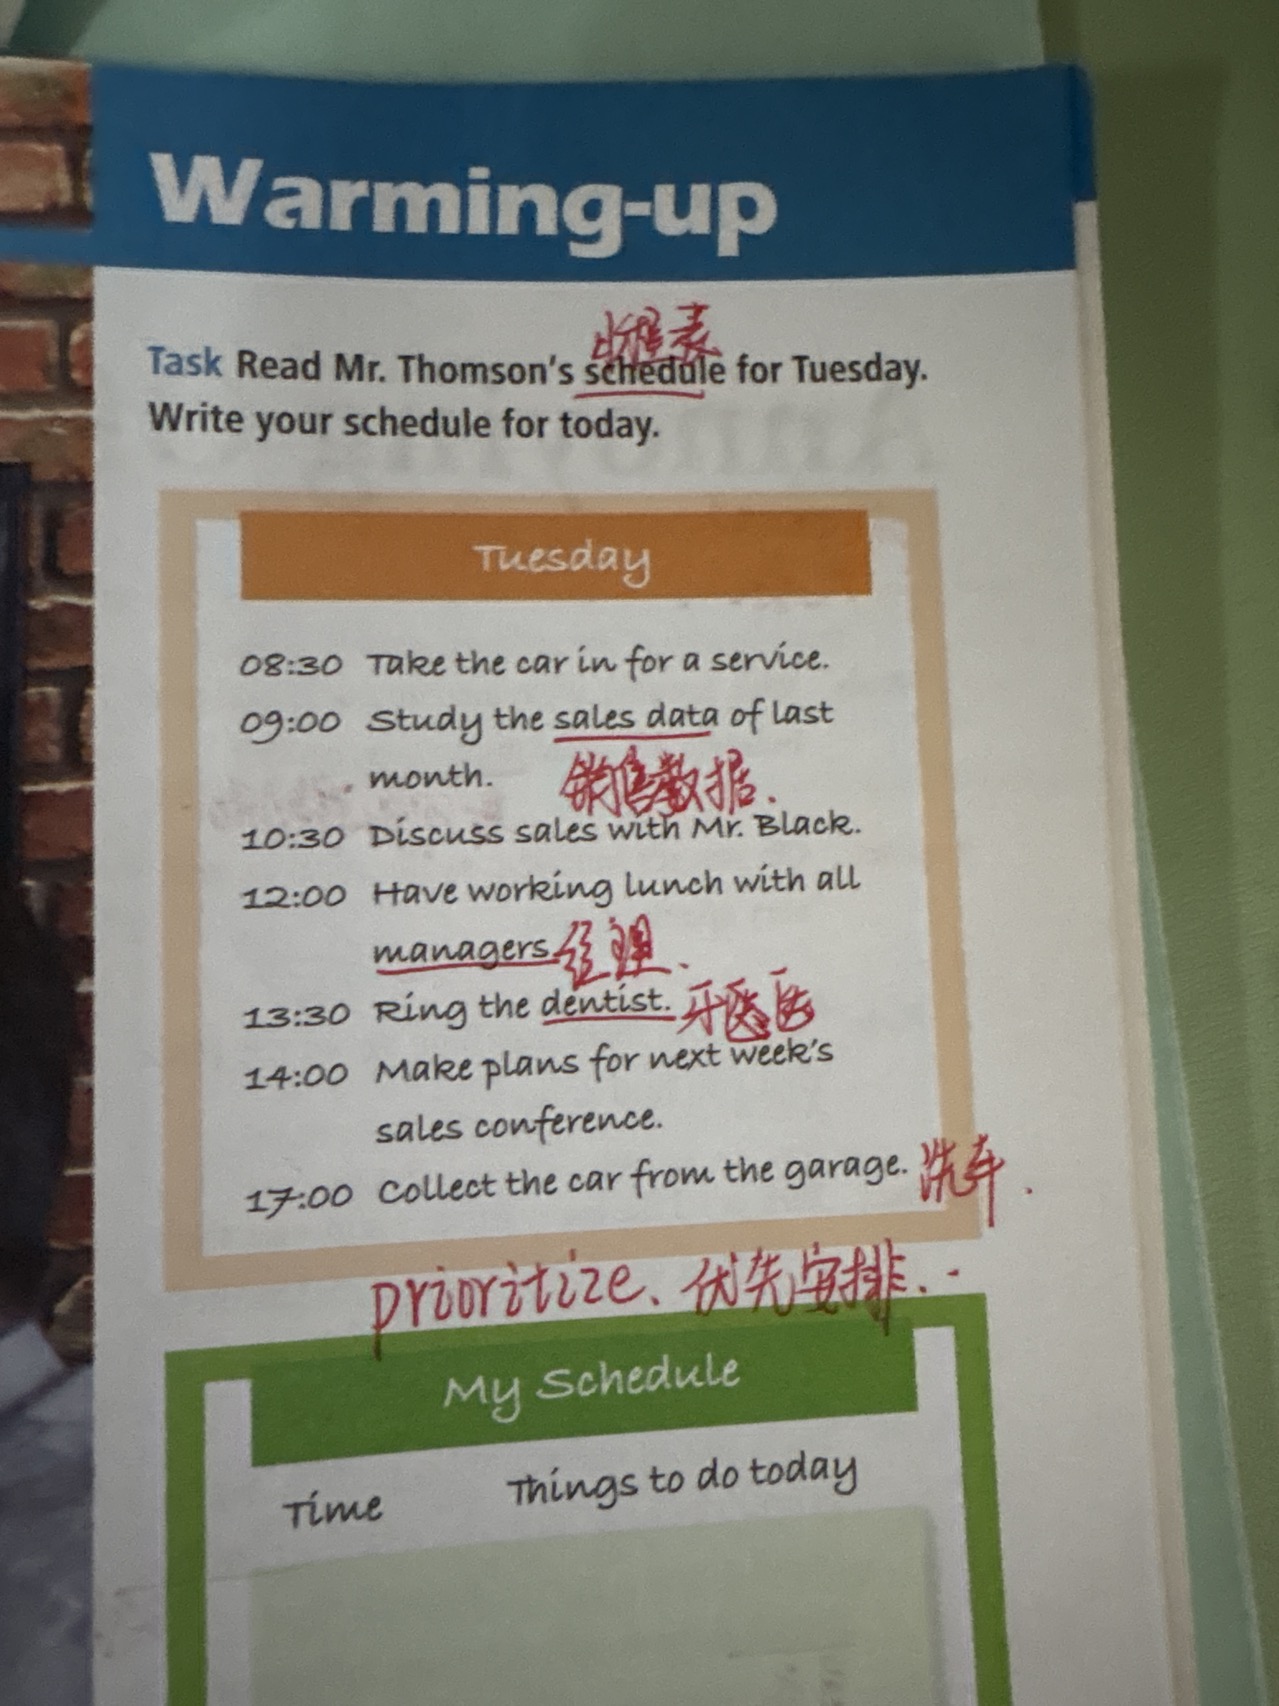 Warming-up
程表
Task Read Mr. Thomson's schedule for Tuesday.
Write your schedule for today.
Tuesday
08:30 Take the car in for a service.
09:00 Study the sales data of last
month. 销售数据.
10:30 Discuss sales with Mr. Black.
12:00 Have working lunch with all
managers. 经理.
13:30 Ring the dentist. 牙医
14:00 Make plans for next week's
sales conference.
17:00 Collect the car from the garage. 洗车.
prioritize. 优先安排..
My Schedule
Time Things to do today